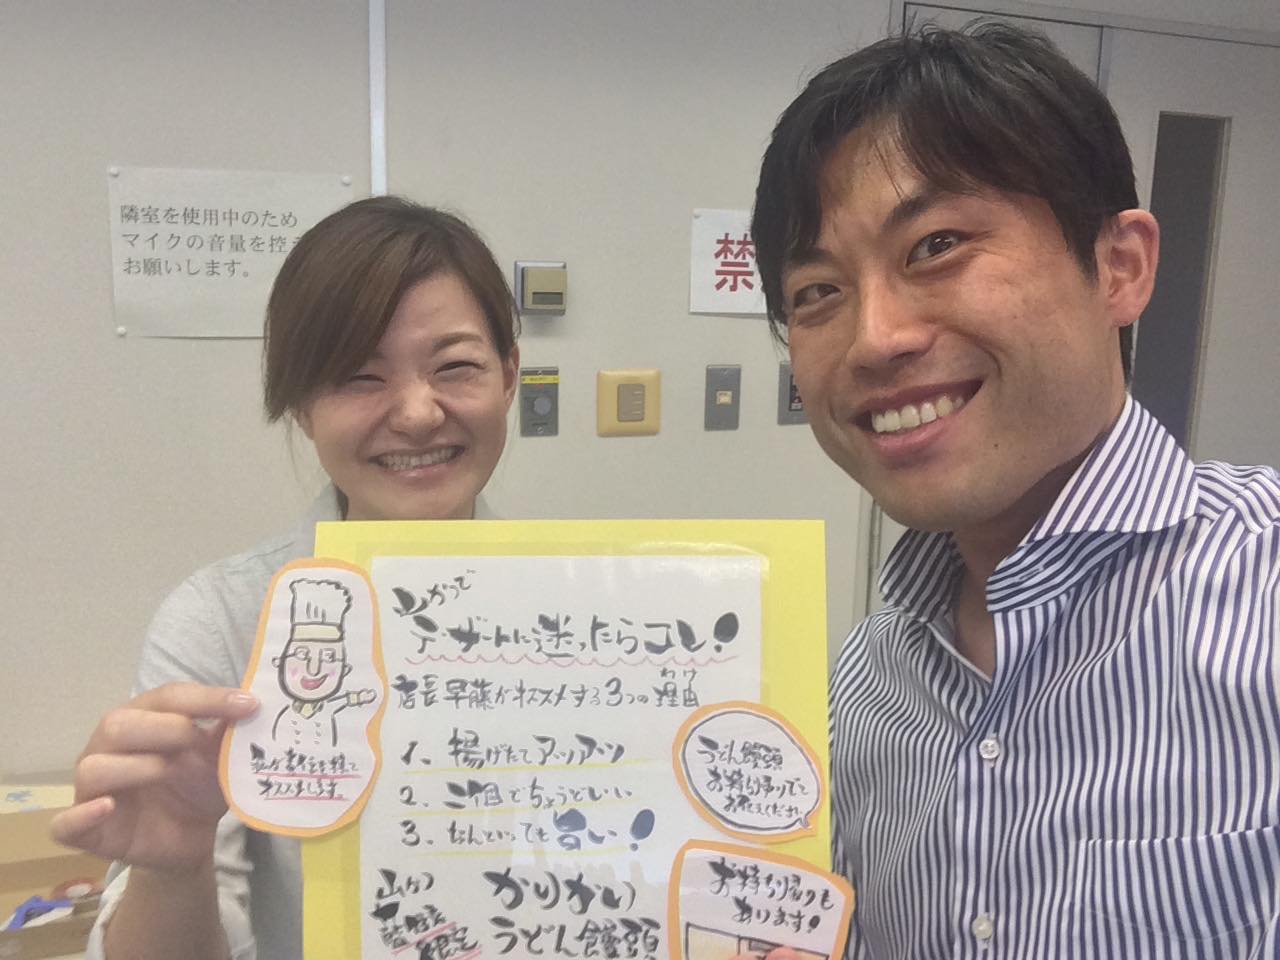 隣室を使用中のため
マイクの音量を控え
お願いします。
禁
山かつで
デザートに迷ったらコレ!
わけ
店長早藤がオススメする3つの理由
1. 揚げたてアツアツ
2. 二個でちょうどいい
3. なんといっても旨い!
私が責任を持って
オススメします。
うどん饅頭
お持ち帰りでと
お伝えください
山かつ
限定
かりかり
うどん饅頭
お持ち帰りも
あります!